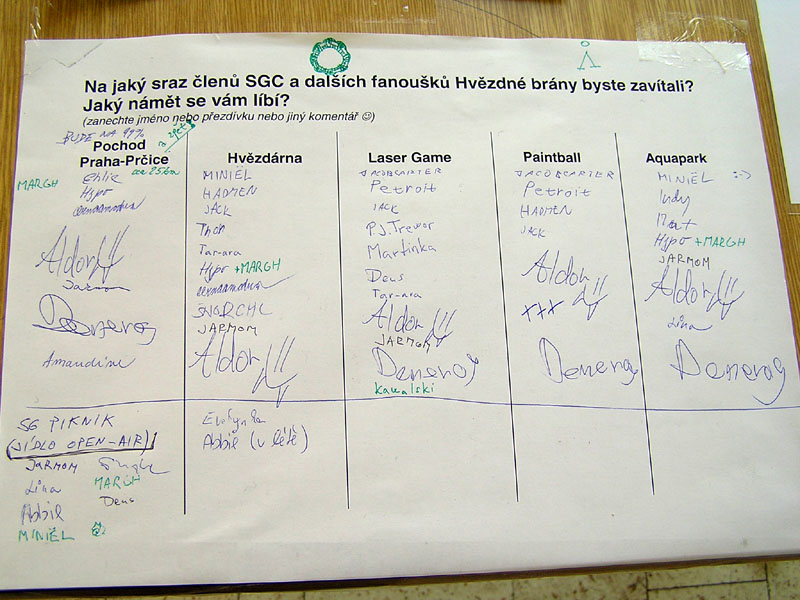 Na jaký sraz členů SGC a dalších fanoušků Hvězdné brány byste zavítali?
Jaký námět se vám líbí?
(zanechte jméno nebo přezdívku nebo jiný komentář ☺)
BUDE NA 99%
Pochod
Praha-Prčice
MARGH
Hypo
Aldor
Jarmom
Deneros
Amandine
Hvězdárna
MINIËL
HADMEN
JACK
Thor
Tar-ara
Hypo +MARGH
JARMOM
Aldor
Laser Game
JACOBCARTER
Petroit
JACK
P.J. Trevor
Martinka
Deus
Tar-ara
Aldor
JARMOM
Deneros
Kawalski
Paintball
JACOBCARTER
Petroit
HADMEN
JACK
Aldor
XXX
Deneros
Aquapark
MINIËL :->
Indy
Mat
Hypo +MARGH
JARMOM
Aldor
Lína
Deneros
SG PIKNIK
(JÍDLO OPEN-AIR)
JARMOM
Lína
MARGH
Abbie
Deus
MINIËL
Abbie (v létě)